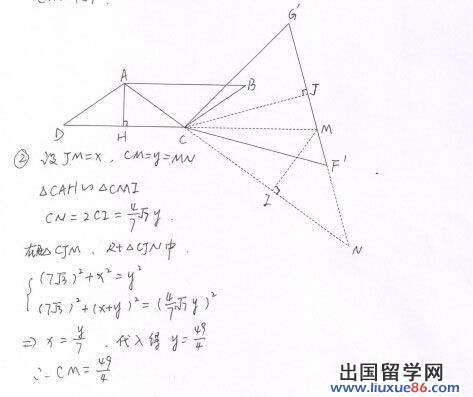 G'
A
B
J
D
H
C
M
F'
I
N
② 设JM=x, CM=y=MN
△CAH∽△CMI
CN=2CI=4/7√7y.
在Rt△CJM、Rt△CJN中.
(7√3)²+x²=y²
(7√3)²+(x+y)²=(4/7√7y)²
⇒ x=y/7. 代入得 y=49/4
∴ CM=49/4
出国留学网
www.liuxue86.com